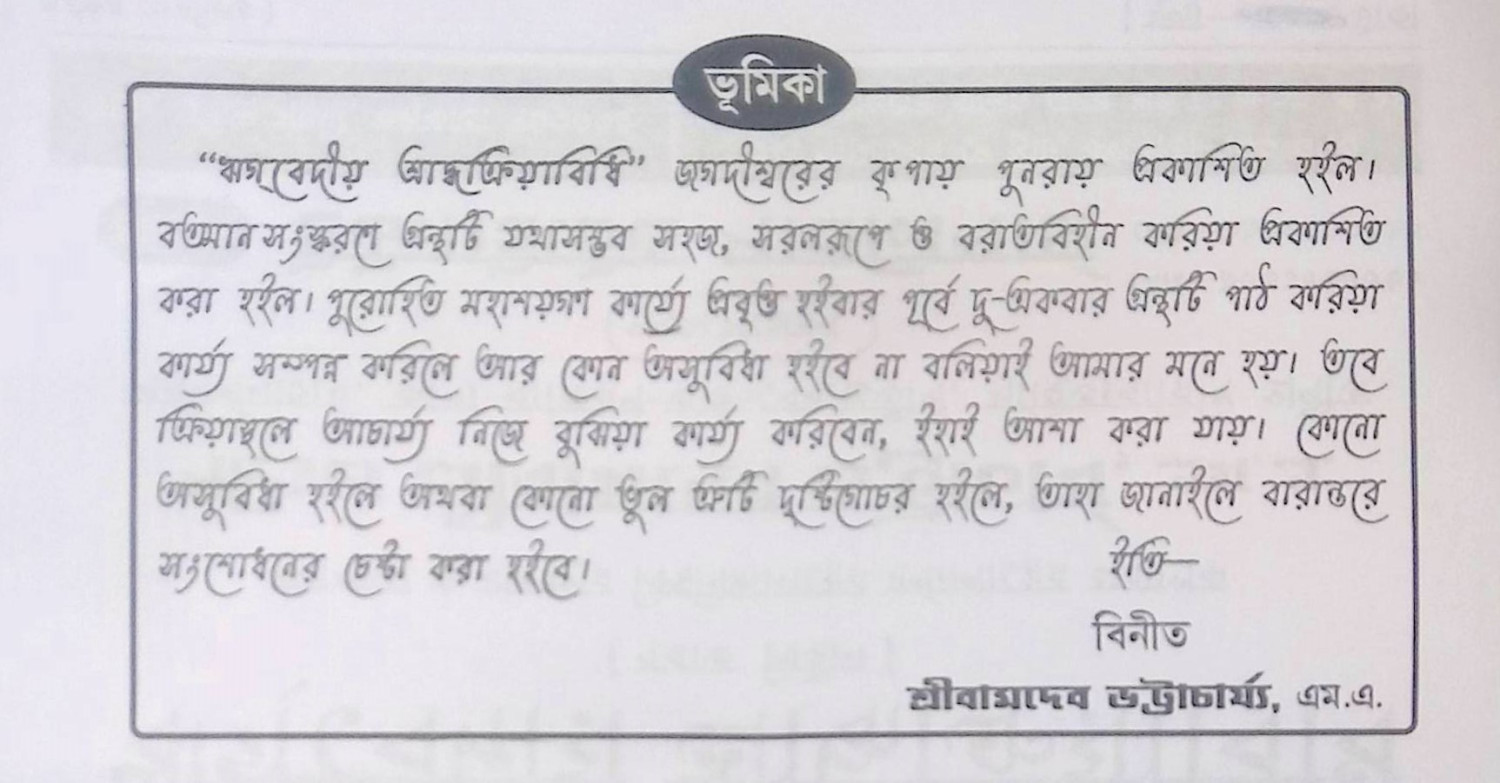 ভূমিকা
“ঋগ্‌বেদীয় শ্রাদ্ধক্রিয়াবিধি” জগদীশ্বরের কৃপায় পুনরায় প্রকাশিত হইল।
বর্তমান সংস্করণে গ্রন্থটি যথাসম্ভব সহজ, সরলরূপে ও বরাতবিহীন করিয়া প্রকাশিত
করা হইল। পুরোহিত মহাশয়গণ কার্য্যে প্রবৃত্ত হইবার পূর্বে দু-একবার গ্রন্থটি পাঠ করিয়া
কার্য্য সম্পন্ন করিলে আর কোন অসুবিধা হইবে না বলিয়াই আমার মনে হয়। তবে
ক্রিয়াস্থলে আচার্য্য নিজে বুঝিয়া কার্য্য করিবেন, ইহাই আশা করা যায়। কোনো
অসুবিধা হইলে অথবা কোনো ভুল ত্রুটি দৃষ্টিগোচর হইলে, তাহা জানাইলে বারান্তরে
সংশোধনের চেষ্টা করা হইবে। ইতি—
বিনীত
শ্রীবামদেব ভট্টাচার্য্য, এম.এ.